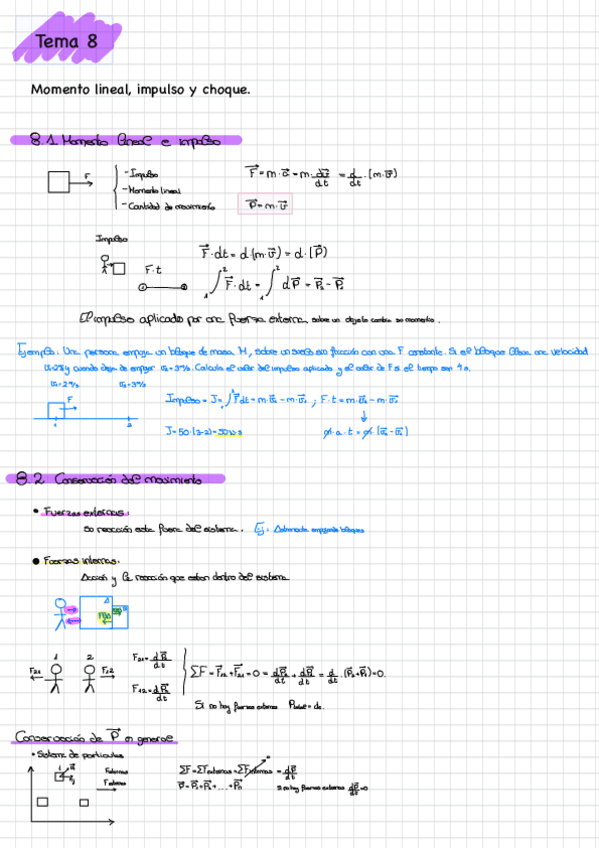 Tema 8
Momento lineal, impulso y choque.
8.1 Momento lineal e impulso
F
- Impulso
- Momento lineal
- Cantidad de movimiento
F⃗ = m·a⃗ = m·dv⃗/dt = d/dt·(m·v⃗)
P⃗ = m·v⃗
Impulso
F·t
F⃗·dt = d(m·v⃗) = d·(P⃗)
∫₁² F⃗·dt = ∫₁² dP⃗ = P⃗₂ - P⃗₁
El impulso aplicado por una fuerza externa sobre un objeto cambia su momento.
Ejemplo: Una persona empuja un bloque de masa M, sobre un suelo sin fricción con una F constante. Si el bloque lleva una velocidad
y cuando deja de empujar v₂=3m/s. Calcula el valor del impulso aplicado y el valor de F si el tiempo son 4s.
v₁=2m/s v₂=3m/s
F
1 2
Impulso = J = ∫₁² F·dt = m·v₂ - m·v₁ ; F·t = m·v₂ - m·v₁
J=50·(3-2)=50
m·a·t = m·(v₂ - v₁)
8.2 Conservación del movimiento
• Fuerzas externas.
Su reacción esta fuera del sistema. Ej:
• Fuerzas internas.
Acción y la reacción que estan dentro del sistema
1 2
F₂₁ F₁₂
F₂₁ = dP⃗₁/dt
F₁₂ = dP⃗₂/dt
ΣF = F⃗₁₂ + F⃗₂₁ = 0 = dP⃗₁/dt + dP⃗₂/dt = d/dt·(P⃗₁+P⃗₂)=0.
Si no hay fuerzas externas
Conservación de P⃗ en general
• Sistema de particulas
F externas
F internas
ΣF = ΣF externas + ΣF internas = dP⃗/dt
P⃗ = P⃗₁ + P⃗₂ + ... + P⃗n
Si no hay fuerzas externas dP⃗/dt = 0